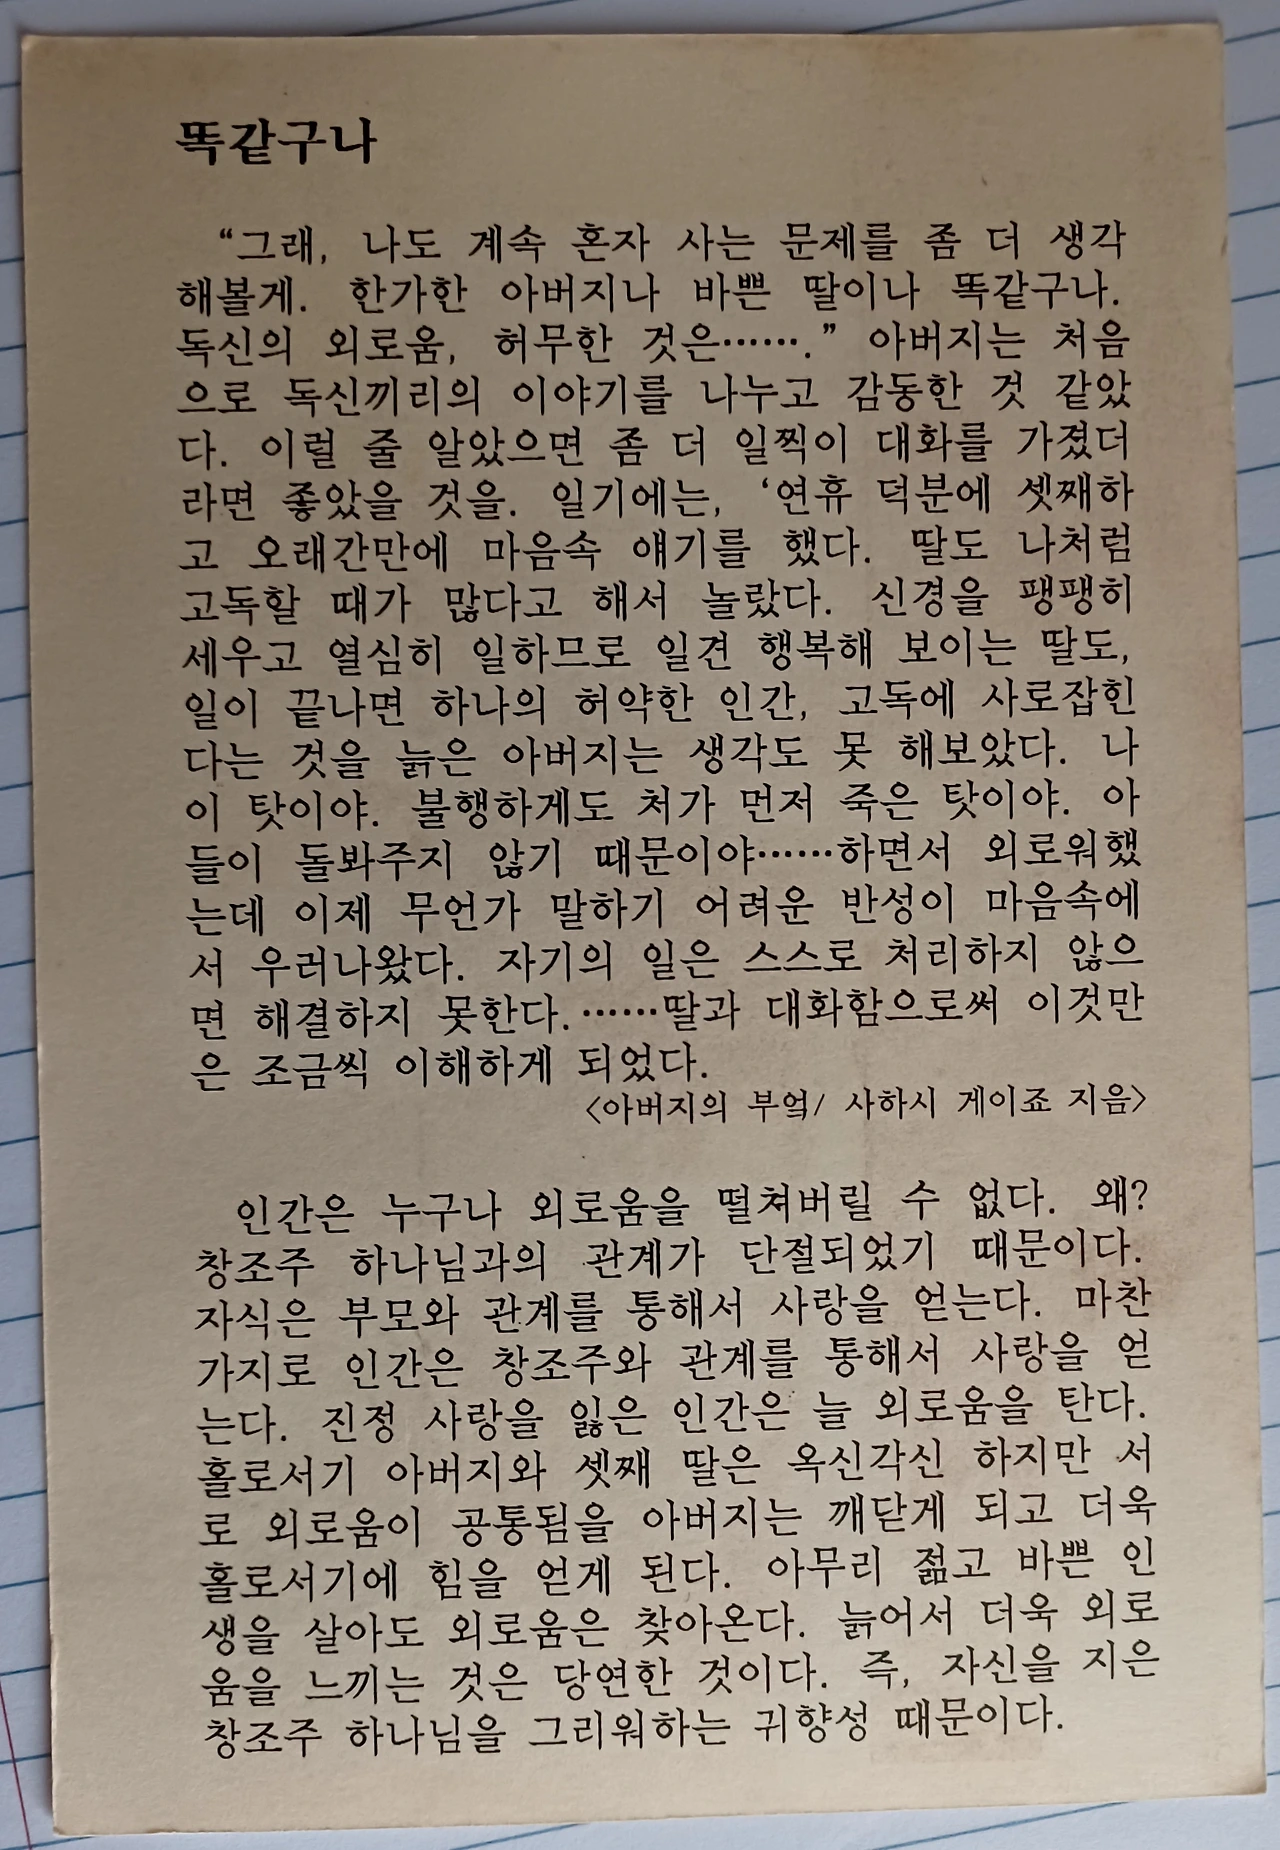 똑같구나
“그래, 나도 계속 혼자 사는 문제를 좀 더 생각
해볼게. 한가한 아버지나 바쁜 딸이나 똑같구나.
독신의 외로움, 허무한 것은…….” 아버지는 처음
으로 독신끼리의 이야기를 나누고 감동한 것 같았
다. 이럴 줄 알았으면 좀 더 일찍이 대화를 가졌더
라면 좋았을 것을. 일기에는, ‘연휴 덕분에 셋째하
고 오래간만에 마음속 얘기를 했다. 딸도 나처럼
고독할 때가 많다고 해서 놀랐다. 신경을 팽팽히
세우고 열심히 일하므로 일견 행복해 보이는 딸도,
일이 끝나면 하나의 허약한 인간, 고독에 사로잡힌
다는 것을 늙은 아버지는 생각도 못 해보았다. 나
이 탓이야. 불행하게도 처가 먼저 죽은 탓이야. 아
들이 돌봐주지 않기 때문이야……하면서 외로워했
는데 이제 무언가 말하기 어려운 반성이 마음속에
서 우러나왔다. 자기의 일은 스스로 처리하지 않으
면 해결하지 못한다.……딸과 대화함으로써 이것만
은 조금씩 이해하게 되었다.
〈아버지의 부엌/ 사하시 게이죠 지음〉
인간은 누구나 외로움을 떨쳐버릴 수 없다. 왜?
창조주 하나님과의 관계가 단절되었기 때문이다.
자식은 부모와 관계를 통해서 사랑을 얻는다. 마찬
가지로 인간은 창조주와 관계를 통해서 사랑을 얻
는다. 진정 사랑을 잃은 인간은 늘 외로움을 탄다.
홀로서기 아버지와 셋째 딸은 옥신각신 하지만 서
로 외로움이 공통됨을 아버지는 깨닫게 되고 더욱
홀로서기에 힘을 얻게 된다. 아무리 젊고 바쁜 인
생을 살아도 외로움은 찾아온다. 늙어서 더욱 외로
움을 느끼는 것은 당연한 것이다. 즉, 자신을 지은
창조주 하나님을 그리워하는 귀향성 때문이다.